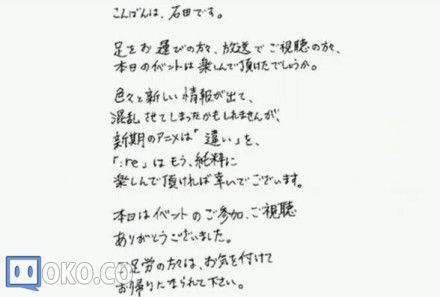 こんばんは、石田です。
足をお運びの方々、放送でご視聴の方々、
本日のイベントは楽しんで頂けたでしょうか。
色々と新しい情報が出て、
混乱させてしまったかもしれませんが、
新期のアニメは「違い」を、
「:re」はもう、純粋に
楽しんで頂ければ幸いでございます。
本日はイベントのご参加、ご視聴
ありがとうございました。
ご足労の方々は、お気を付けて
お帰りになられて下さい。
OKO.CO